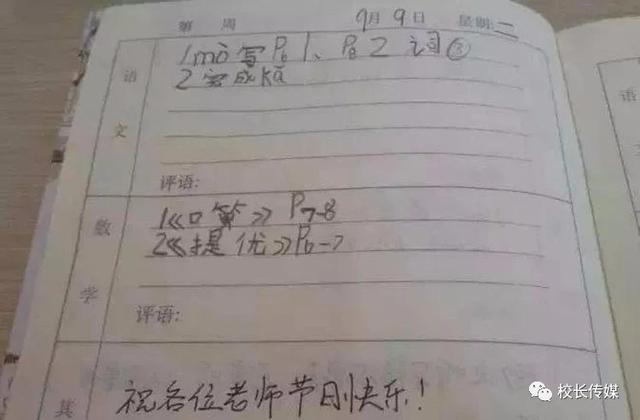 第 周 9月9日 星期:二
语文
1mò写P6 1、P8 2 词③
2完成kǎ
评语:
数学
1《口算》P7-8
2《提优》P6-7
评语:
其
祝各位老师节日快乐!
语
校长传媒